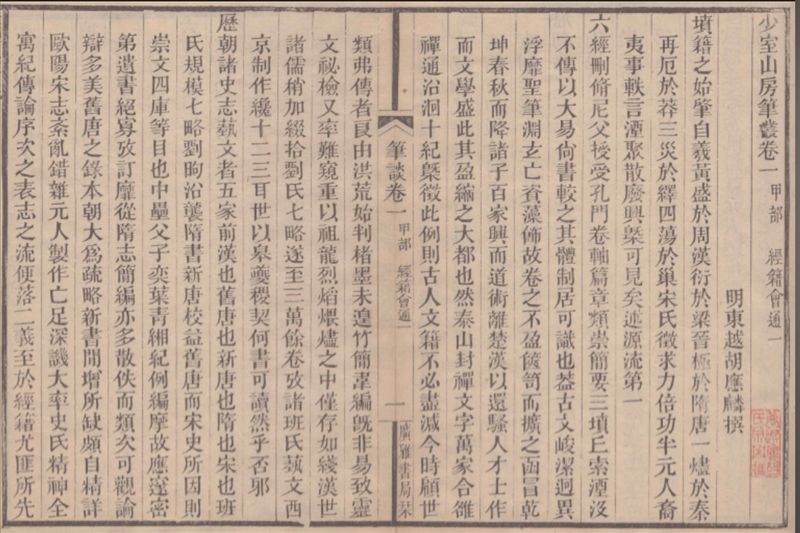 少室山房筆叢卷一 甲部 經籍會通一
明東越胡應麟撰
墳籍之始肇自羲黃盛於周漢衍於梁晉極於隋唐一燼於秦
再厄於莽三災於繹四蕩於巢宋氏徵求力倍功半元人裔
夷事軼言湮聚散廢興槩可見矣述源流第一
六經刪脩尼父授受孔門卷軸篇章類崇簡要三墳丘索湮沒
不傳以大易尙書較之其體制居可識也葢古文峻潔迥異
浮靡聖筆淵玄亡資藻飾故卷之不盈篋笥而擴之函冒乾
坤春秋而降諸子百家興而道術離楚漢以還騷人才士作
而文學盛此其盈縮之大都也然泰山封禪文字萬家合雒
禪通沿洄十紀槩徵此例則古人文籍不必盡減今時顧世
類弗傳者良由洪荒始判楮墨未遑竹簡韋編旣非易致靈
文祕檢又率難窺重以祖龍烈焰煨燼之中僅存如綫漢世
諸儒稍加綴拾劉氏七略遂至三萬餘卷攷諸班氏蓺文西
京制作纔十二三耳世以皋夔稷契何書可讀然乎否邪
歷朝諸史志蓺文者五家前漢也舊唐也新唐也隋也宋也班
氏規模七略劉昫沿襲隋書新唐校益舊唐而宋史所因則
崇文四庫等目也中壘父子奕葉靑緗紀例編摩故應邃密
第遺書絕寡攷訂靡從隋志簡編亦多散佚而類次可觀論
辯多美舊唐之錄本朝大爲疏略新書閒增所缺頗自精詳
歐陽宋志紊亂錯雜元人製作亡足深譏大率史氏精神全
寓紀傳論序次之表志之流便落二義至於經籍尤匪所先
筆談卷一 甲部 經籍會通一
一
廣雅書局栞